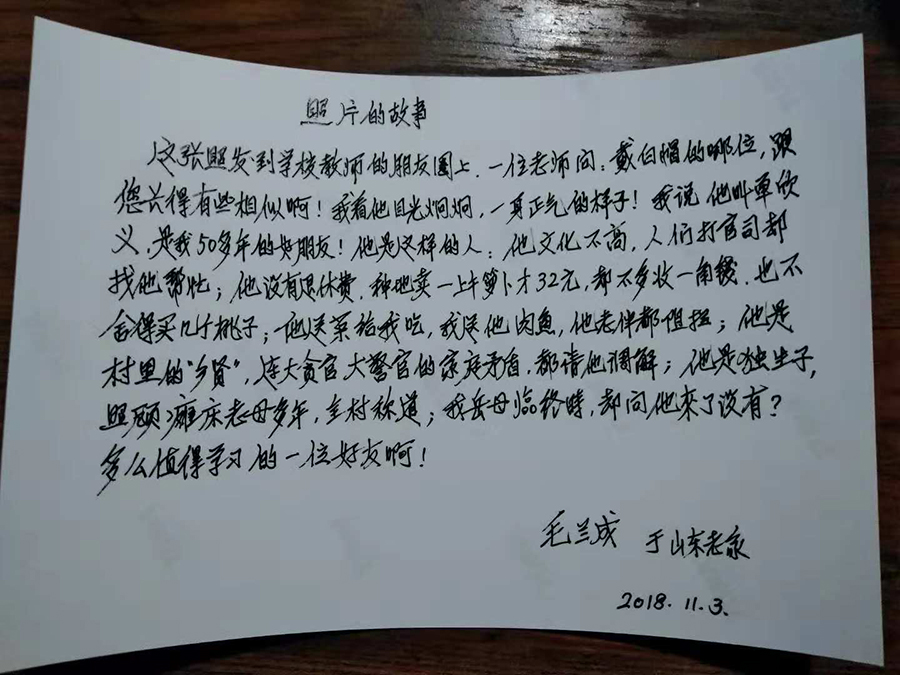 照片的故事
这张照发到学校教师的朋友圈上.一位老师问:戴白帽的哪位,跟
您长得有些相似啊!我看他目光炯炯,一身正气的样子!我说他叫单欣
义,是我50多年的好朋友!他是这样的人:他文化不高,人们打官司都
找他帮忙;他没有退休费.种地卖一上午萝卜才32元,都不多收一角钱.也不
舍得买几个桃子;他送菜给我吃,我送他肉鱼,他老伴都阻拦;他是
村里的"乡贤",连大贪官大警官的家庭矛盾,都请他调解;他是独生子,
照顾瘫床老母多年,全村称道;我岳母临终時,都问他來了没有?
多么值得学习的一位好友啊!
毛兰成 于山东老家
2018.11.3.